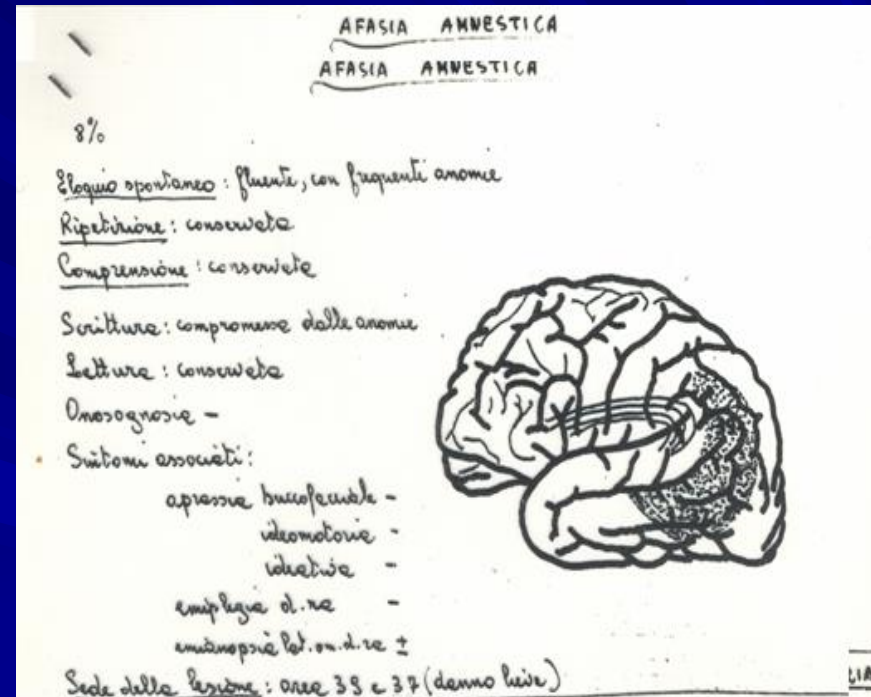 AFASIA AMNESTICA
AFASIA AMNESTICA
8%
Eloquio spontaneo : fluente, con frequenti anomie
Ripetizione : conservata
Comprensione : conservata
Scrittura : compromessa dalle anomie
Lettura : conservata
Anosognosia -
Sintomi associati :
aprassia buccofacciale -
ideomotoria -
ideativa -
emiplegia d.ra -
emianopsia lat. om. d.ra ±
Sede della lesione : area 39 e 37 (danno lieve)